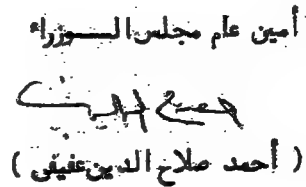 أمين عام مجلس الــوزراء
( أحمد صلاح الدين عفيفى )